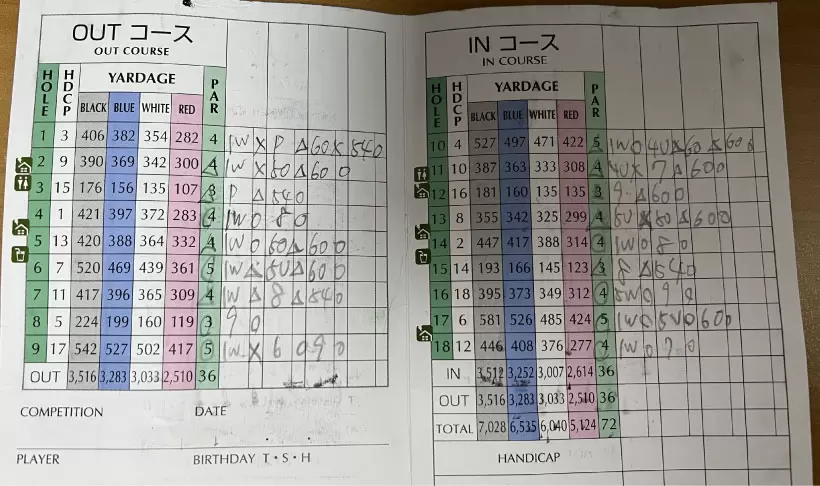 OUT コース
OUT COURSE
HOLE HDCP YARDAGE PAR
BLACK BLUE WHITE RED
1 3 406 382 354 282 4 1W X P △ 60 X 540
2 9 390 369 342 300 4 1W X 50 △ 60 0
3 15 176 156 135 107 3 P △ 540
4 1 421 397 372 283 4 1W 0 8 0
5 13 420 388 364 332 4 1W 0 60 △ 60 0
6 7 520 469 439 361 5 1W △ 5U △ 60 0
7 11 417 396 365 309 4 1W △ 8 △ 540
8 5 224 199 160 119 3 9 0
9 17 542 527 502 417 5 1W X 6 0 9 0
OUT 3,516 3,283 3,033 2,510 36
COMPETITION DATE
PLAYER BIRTHDAY T・S・H
IN コース
IN COURSE
HOLE HDCP YARDAGE PAR
BLACK BLUE WHITE RED
10 4 527 497 471 422 5 1W 0 4U X 60 △ 60 0
11 10 387 363 333 308 4 4U X 7 △ 60 0
12 16 181 160 135 135 3 9 △ 60 0
13 8 355 342 325 299 4 5U X 50 △ 60 0
14 2 447 417 388 314 4 1W 0 8 0
15 14 193 166 145 123 3 8 △ 540
16 18 395 373 349 312 4 5W 0 9 0
17 6 581 526 485 424 5 1W 0 5U 0 60 0
18 12 446 408 376 277 4 1W 0 7 0
IN 3,512 3,252 3,007 2,614 36
OUT 3,516 3,283 3,033 2,510 36
TOTAL 7,028 6,535 6,040 5,124 72
HANDICAP